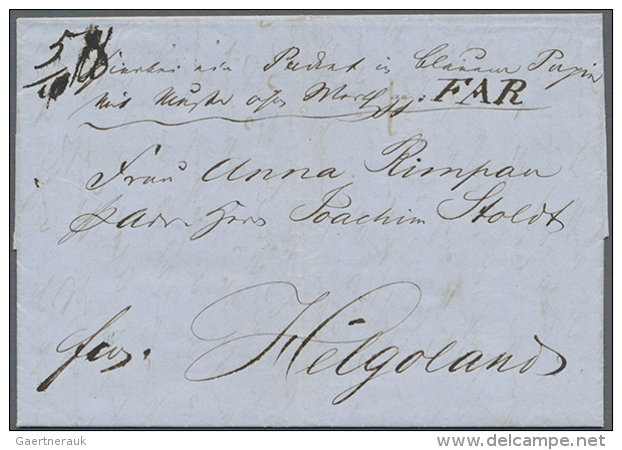 5/10
Hierbei ein Packet in blauem Papier
mit Muster ohne Werth FAR
Frau Anna Rimpau
p Adr. Herr Joachim Stoldt
fr. Helgoland
Gaertnerauk
www.delcampe.net